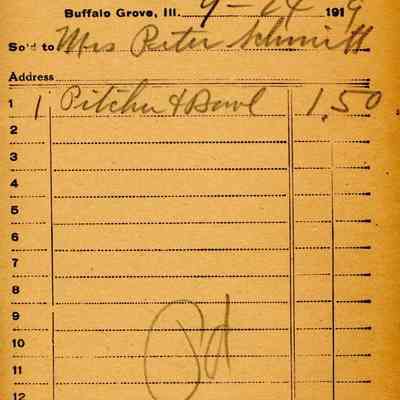 Buffalo Grove, Ill. 9-24 1919
Sold to Mrs Peter Schmitt
Address
1 1 Pitcher & Bowl 1.50
2
3
4
5
6
7
8
9
10
11
12
Pd